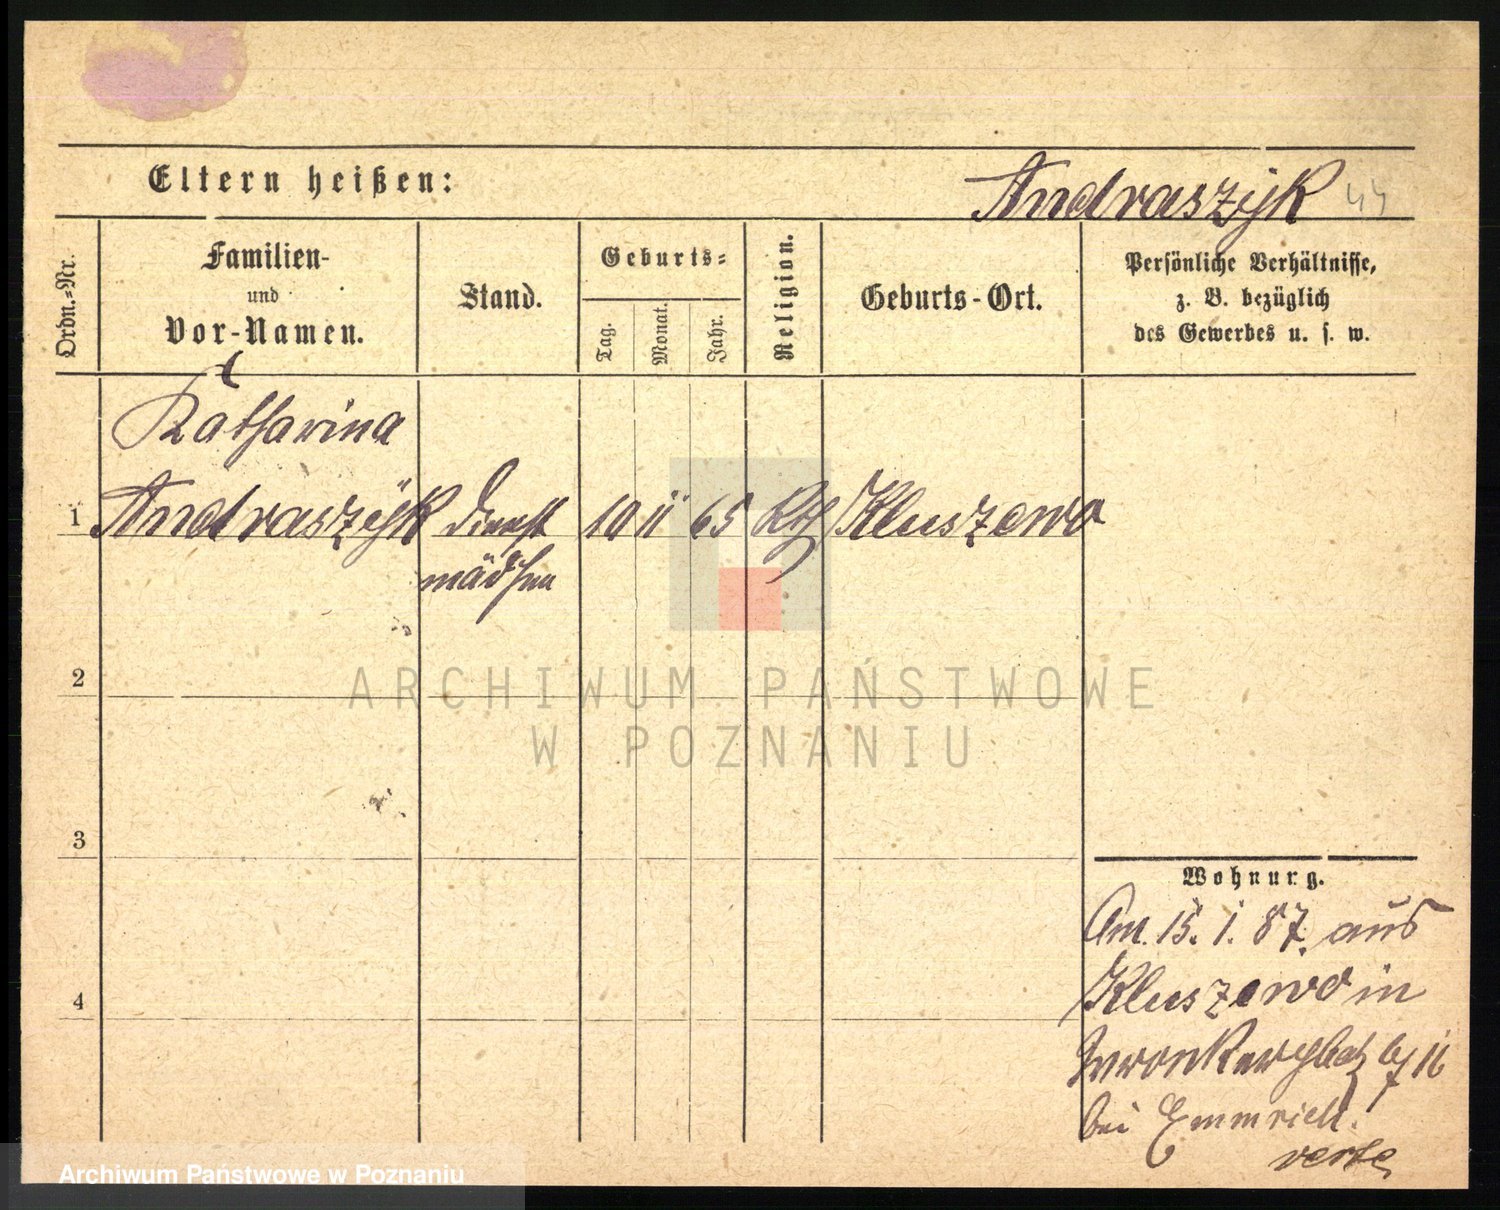 Eltern heißen:
Andraszÿk 44
Ordn.=Nr.
Familien-
und
Vor-Namen.
Stand.
Geburts=
Tag.
Monat.
Jahr.
Religion.
Geburts-Ort.
Persönliche Verhältnisse,
z. B. bezüglich
des Gewerbes u. s. w.
Katharina
1 Andraszÿk Dienst 10 11 65 Kth Kluszewo
mädchen
2
ARCHIWUM PAŃSTWOWE
W POZNANIU
3
Wohnung.
Am 15. 1. 87. aus
4
Kluszewo in
Wronkerplatz
bei Emmrich.
verte
Archiwum Państwowe w Poznaniu